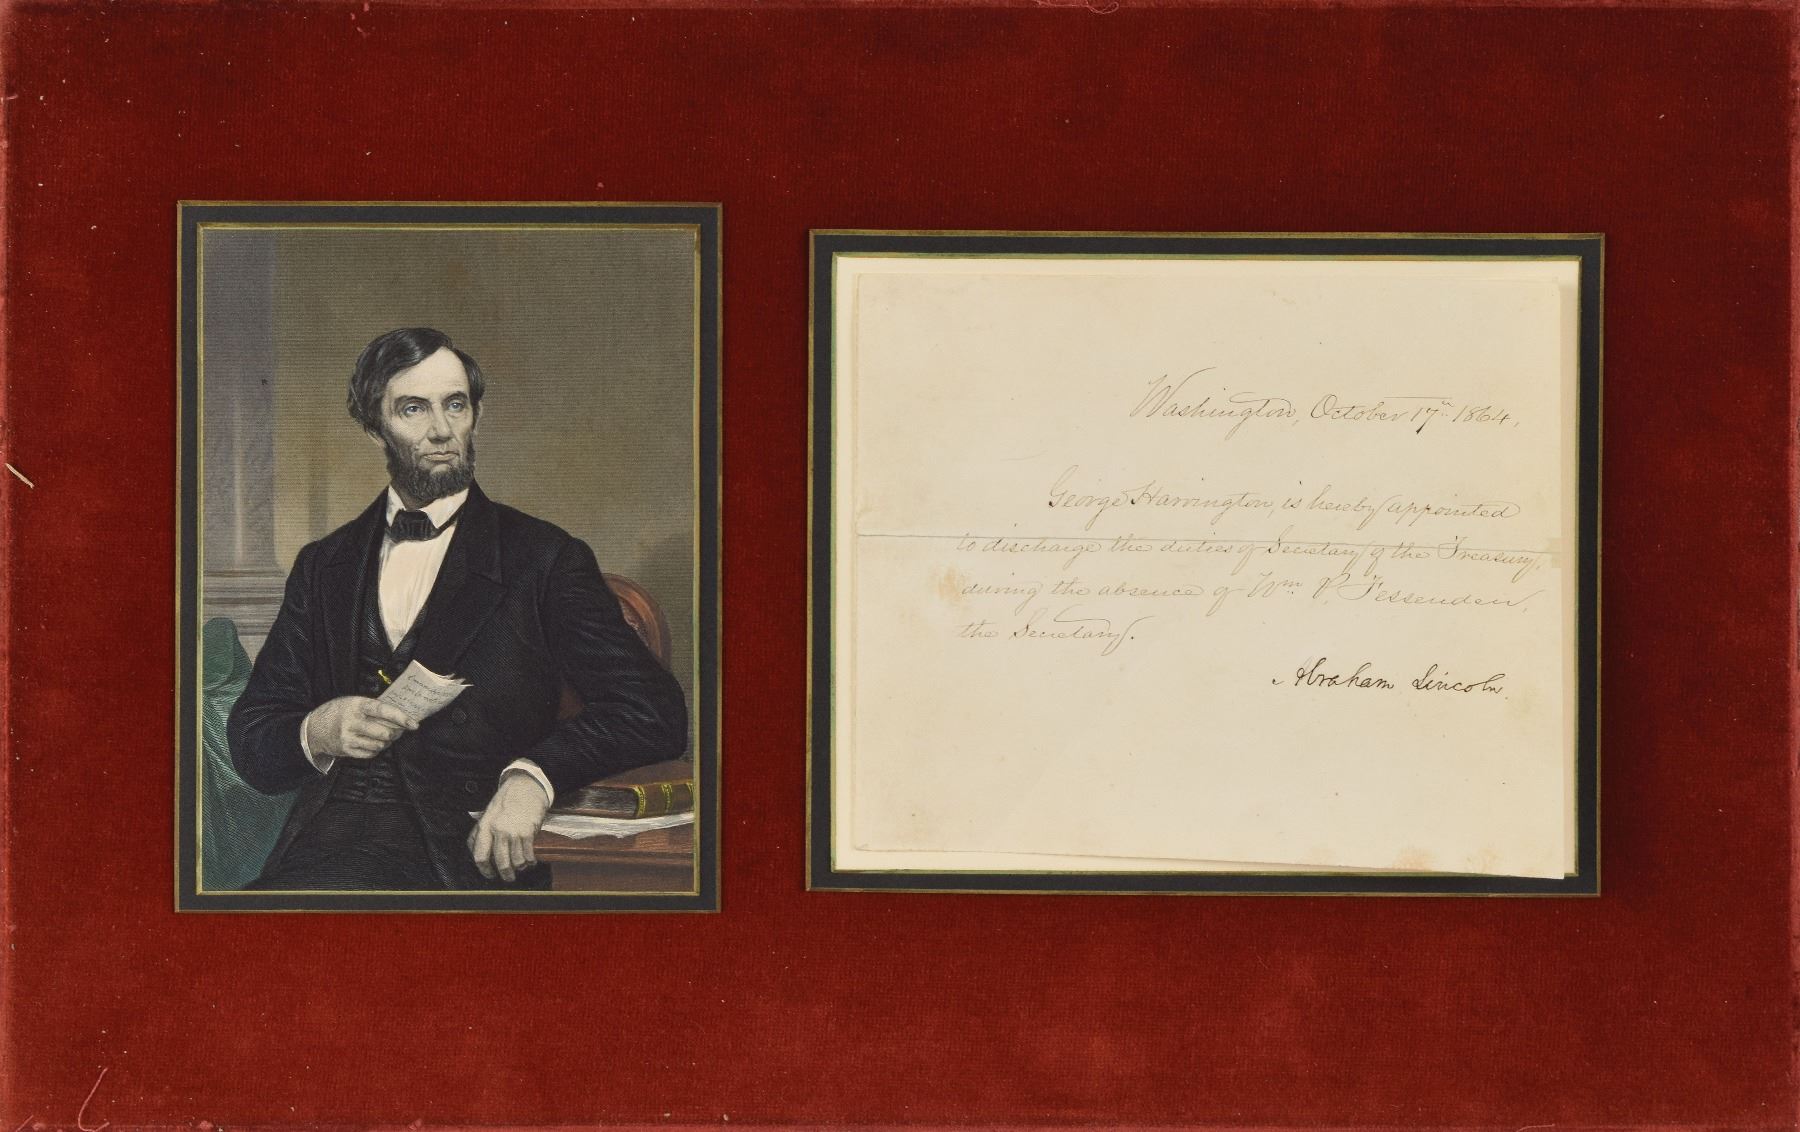 Washington, October 17th 1864.
George Harrington, is hereby appointed
to discharge the duties of Secretary of the Treasury,
during the absence of Wm P. Fessenden,
the Secretary.
Abraham Lincoln.